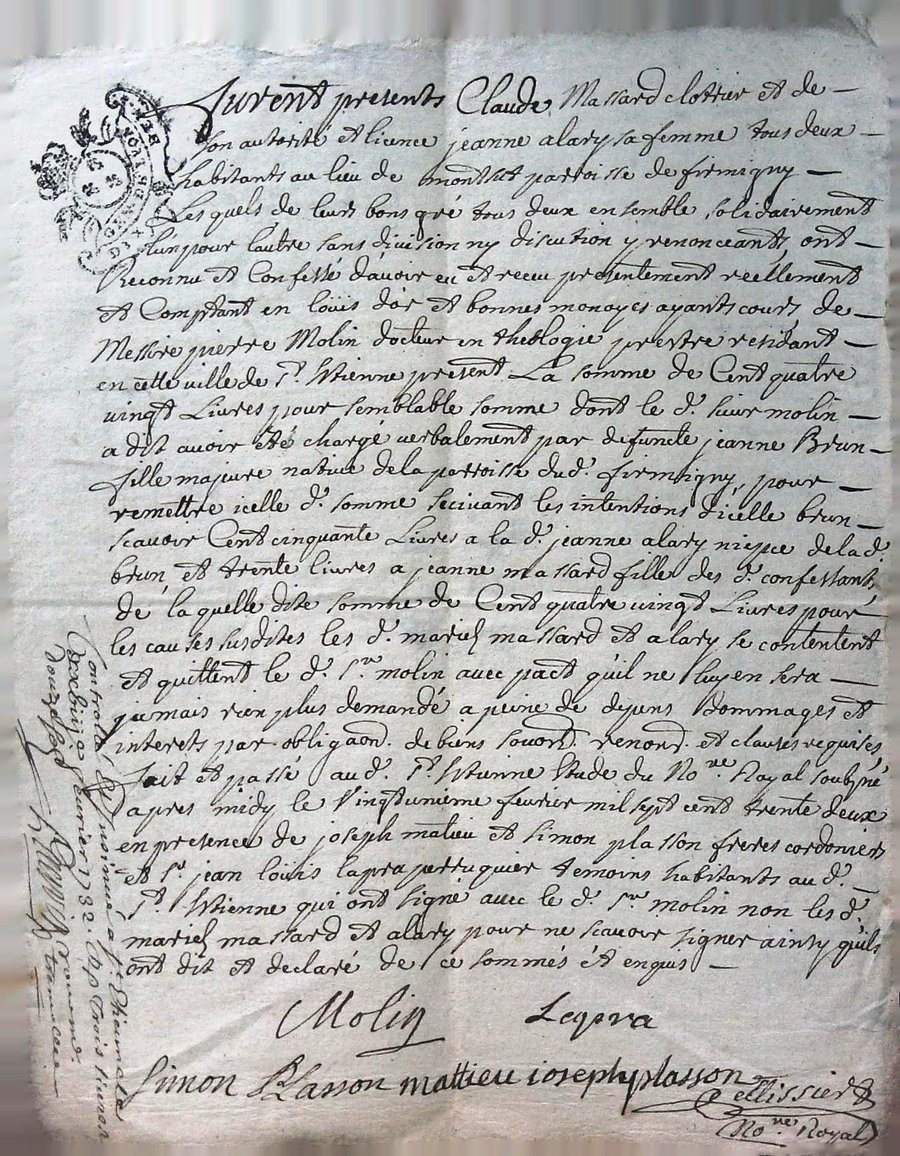 furent presents Claude Massard clottrier et de
son autorité et licence jeanne alary sa femme tous deux
habitants au lieu de parroisse de firmigny
les quels de leurs bons gré tous deux ensemble solidairement
l'un pour l'autre sans division ny discution y renonceants ont
Reconnu et Confessé d'avoir eu et receu presentement reellement
et Comptant en loüis d'or et bonnes monoyes ayants cours de
Messire pierre Molin docteur en theologie prestre residant
en cette ville de St. Etienne present La somme de Cent quatre
vingt Livres pour semblable somme dont le d. sieur molin
a dit avoir été chargé verbalement par defuncte jeanne Brun
fille majure native de la parroisse dud. firmigny, pour
remettre icelle d. somme secivant les intentions d'icelle brun
scavoir Cent cinquante Livres a la d. jeanne alary niepce de la d.
brun et trente livres a jeanne massard fille des d. confessants,
de la quelle dite somme de Cent quatre vingt Livres pour
les causes susdites les d. mariés massard et alary se contentent
et quittent le d. Sr. molin avec pact qu'il ne luy en sera
jamais rien plus demandé a peine de depens Dommages et
interets par obligaon. de biens soword. renond. et clauses requises
fait et passé aud. St. Etienne Etude du Nore. Royal soubsné
apres midy le vingtunieme fevrier mil sept cent trente deux
en presence de joseph matieu et simon plasson freres cordoniers
et Sr. jean loüis lapra perruquier temoins habitants aud.
St. Etienne qui ont signé avec le d. Sr. molin non les d.
mariés massard et alary pour ne scavoir signer ainsy qu'ils
ont dit et declaré de ce sommés et enquis
Molin Lapra
simon Plasson mattieu ioseph plasson
Pellissier
Nore. Royal
Controllé et insinué a St Etienne le
fevrier 1732. trois livres
douze sols